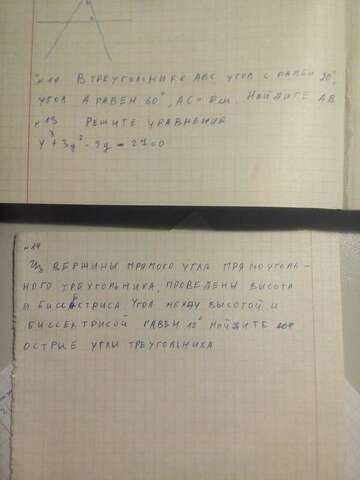 №10 В ТРЕУГОЛЬНИКЕ АВС УГОЛ С РАВЕН
УГОЛ А РАВЕН 60°, АС = см. НАЙДИТЕ АВ
№13 РЕШИТЕ УРАВНЕНИЯ
у³+3у²-9у-27=0
№14
Из ВЕРШИНЫ ПРЯМОГО УГЛА ПРЯМОУГОЛЬ-
НОГО ТРЕУГОЛЬНИКА ПРОВЕДЕНЫ ВЫСОТА
И БИССЕКТРИСА УГОЛ МЕЖДУ ВЫСОТОЙ И
БИССЕКТРИСОЙ РАВЕН 12° НАЙДИТЕ
ОСТРЫЕ УГЛЫ ТРЕУГОЛЬНИКА